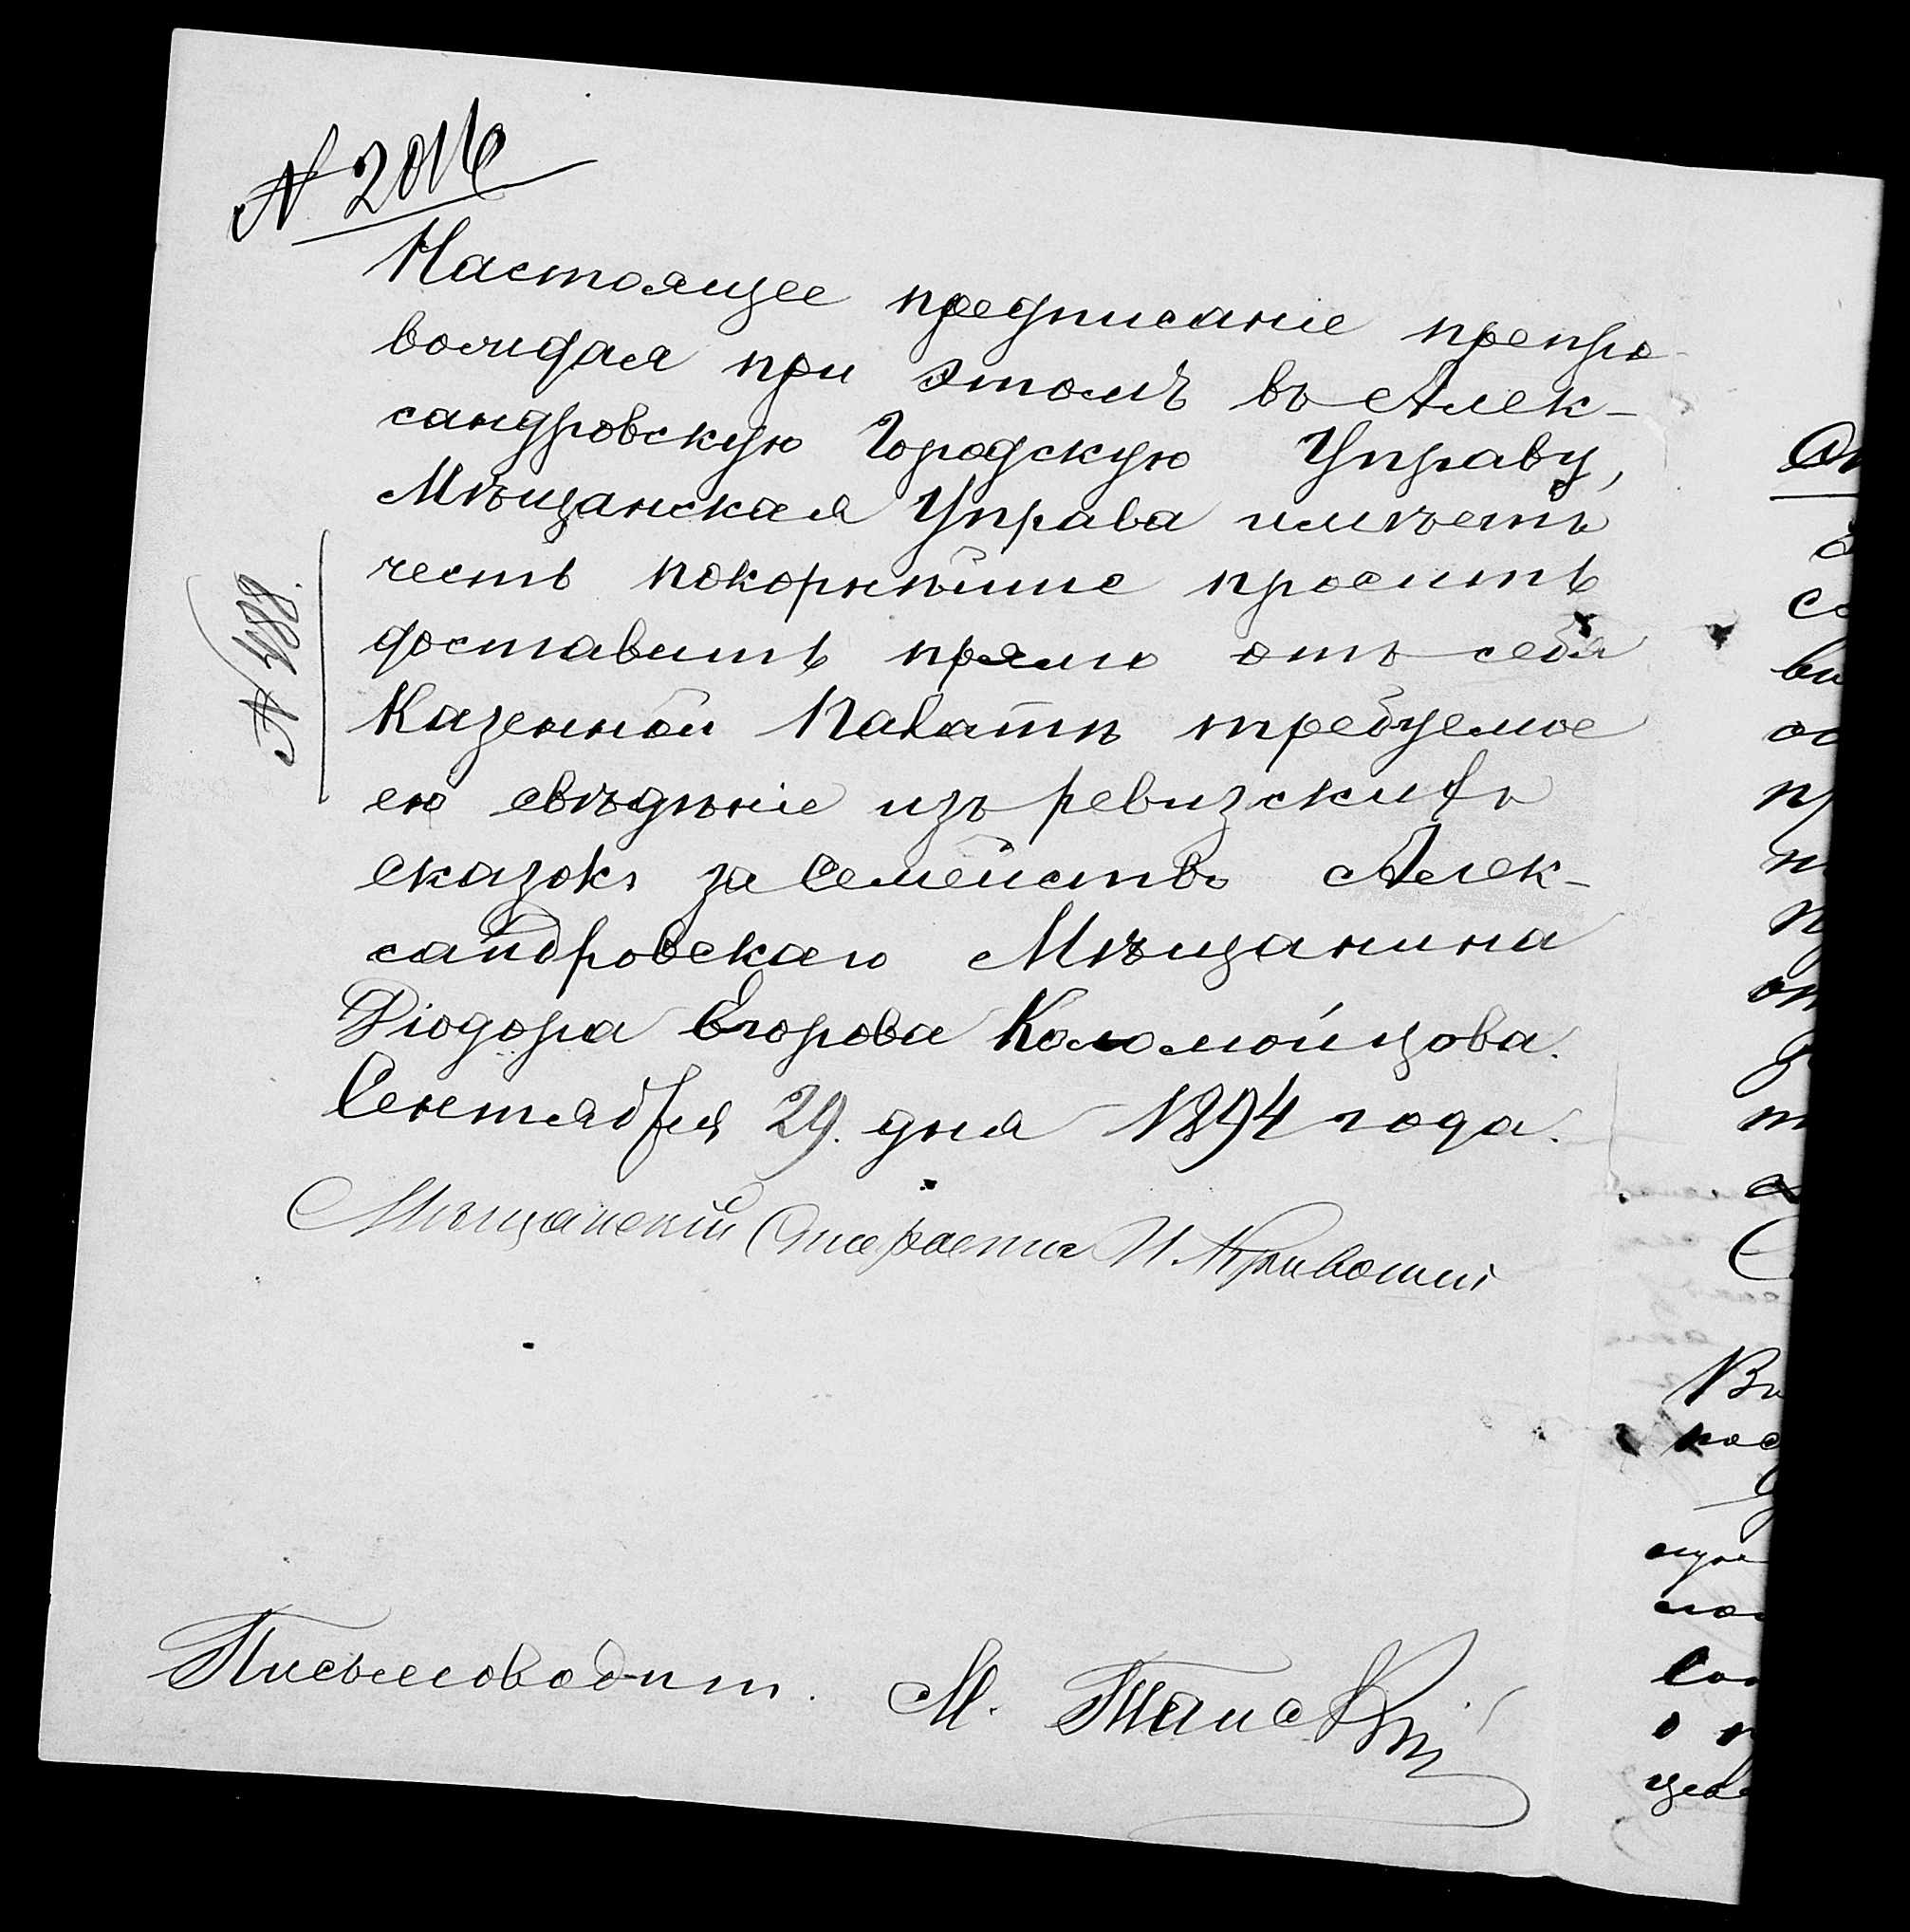 N 2016
Настоящее предписаніе препро-
вождая при этомъ въ Алек-
сандровскую Городскую Управу,
Мѣщанская Управа имѣетъ
честь покорнѣйше просить
доставить прямо отъ себя
Казенной Палатѣ требуемое
ею свѣдѣніе изъ ревизскихъ
сказокъ за семейство Алек-
сандровскаго Мѣщанина
Діодора Егорова Коломойцова.
Сентября 29. дня 1894 года.
Мѣщанскій Староста И. Кривошей
Письмоводит. М.
N 488.